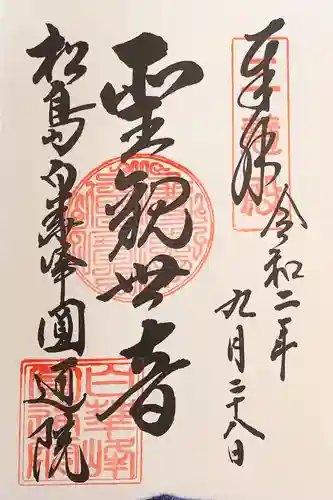 奉拝
令和二年
九月二十八日
聖観世音
松島白華峰圓通院